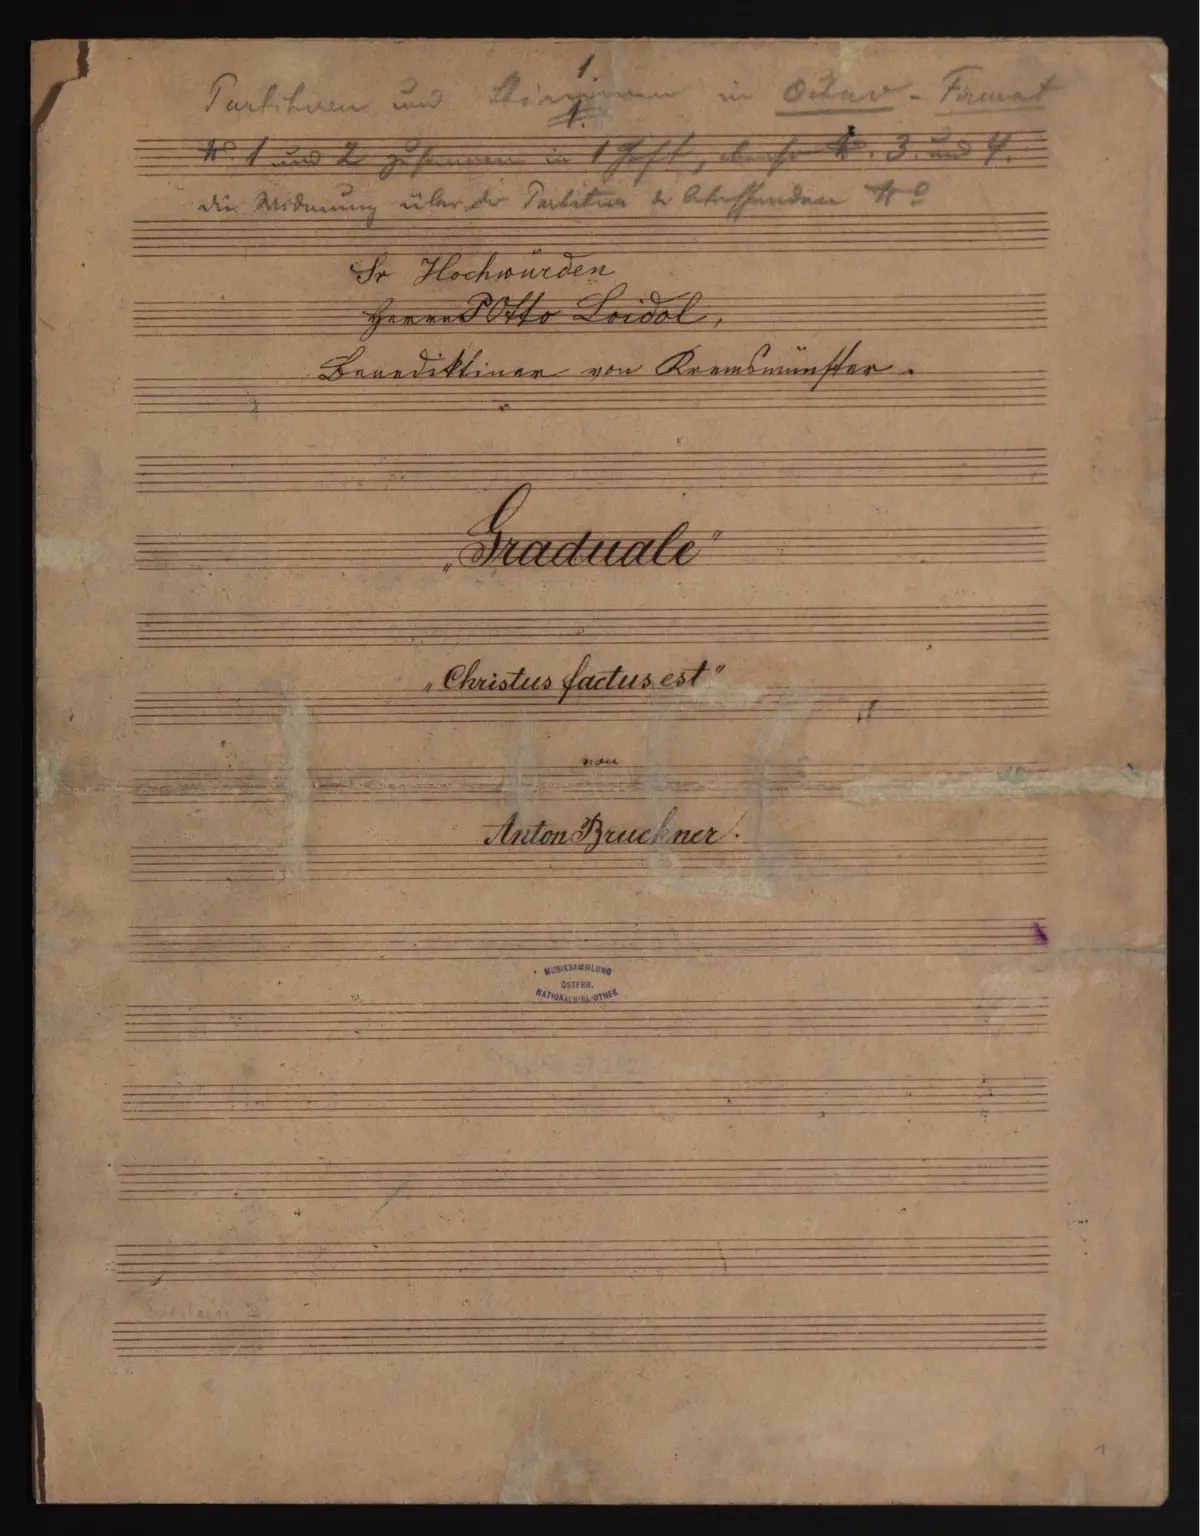 1.
Partituren und Stimmen in Octav-Format
1.
No. 1 und 2 zusammen in 1 Heft, ebenso No. 3. und 4.
die Widmung über der Partitur der betreffenden No
Sr Hochwürden
Herrn P Otto Loidol,
Benediktiner von Kremsmünster.
„Graduale"
„Christus factus est"
von
Anton Bruckner.
MUSIKSAMMLUNG
ÖSTERR.
NATIONALBIBLIOTHEK
1